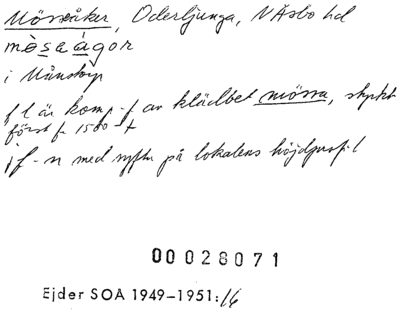 Mösseåker, Oderljunga, N Åsbo hd
mösaågor
i Münstorp
fl är komp. -f av klädbet mössa, styckt
först fr 1500-t
jf-n med syftn på lokalens höjdprofil
00028071
Ejder SOA 1949–1951:16